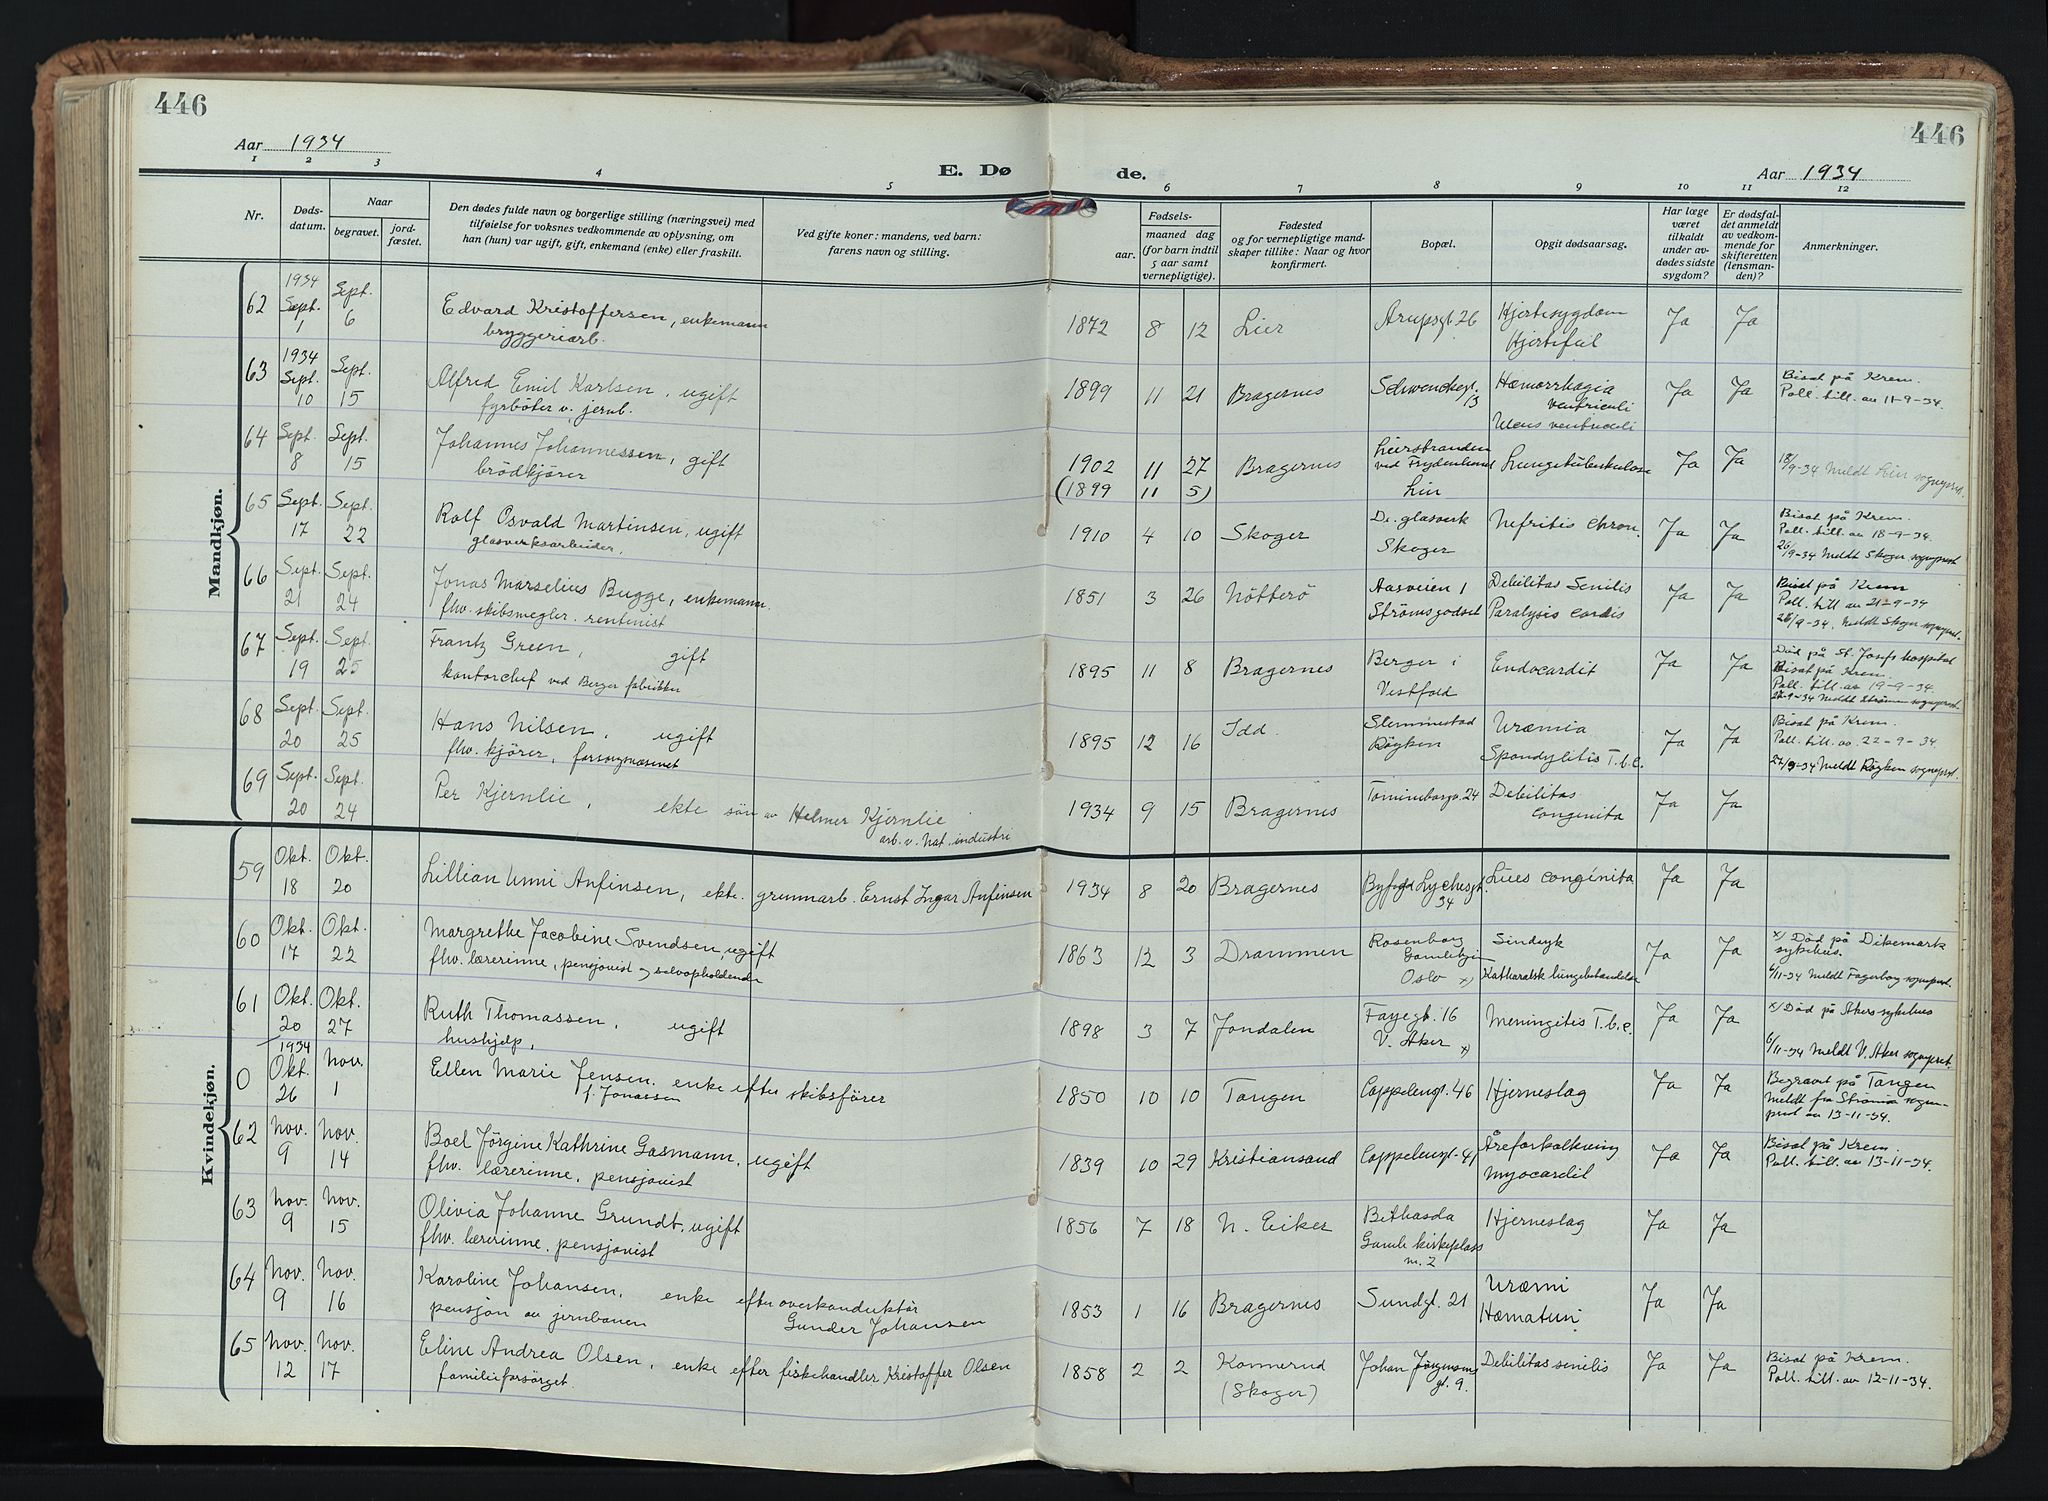 446
446
Aar 1934
E. Dø
de.
Aar 1934
1 2 3 4 5 6 7 8 9 10 11 12
Nr.
Døds-
datum.
Naar
begravet.
jord-
fæstet.
Den dødes fulde navn og borgerlige stilling (næringsvei) med
tilføielse for voksnes vedkommende av oplysning, om
han (hun) var ugift, gift, enkemand (enke) eller fraskilt.
Ved gifte koner: mandens, ved barn:
farens navn og stilling.
Fødsels-
aar.
maaned dag
(for barn indtil
5 aar samt
vernepligtige).
Fødested
og for vernepligtige mand-
skaper tillike: Naar og hvor
konfirmert.
Bopæl.
Opgit dødsaarsag.
Har læge
været
tilkaldt
under av-
dødes sidste
sygdom?
Er dødsfal-
det anmeldt
av vedkom-
mende for
skifteretten
(lensman-
den)?
Anmerkninger.
Mandkjøn.
62 1934 Sept. 1 Sept. 6 Edvard Kristoffersen, enkemann
bryggeriarb.
1872 8 12 Lier Arupsgt. 26 Hjertesygdom
Hjertefeil
Ja Ja
63 1934 Sept. 10 Sept. 15 Alfred Emil Karlsen, ugift
fyrbøter v. jernb.
1899 11 21 Bragernes Schwenckegt. 13 Hæmorrhagia
ventriculi
Ulcus ventriculi
Ja Ja Bisat på Krem.
Poll. till. av 11-9-34.
64 Sept. 8 Sept. 15 Johannes Johannessen, gift
brödkjörer
1902 11 27
(1899 11 5)
Bragernes Liersbranden
ved Frydenlund
Lier
Lungetuberkulose Ja Ja 18/9-34 Meldt Lier sogneprest.
65 Sept. 17 Sept. 22 Rolf Osvald Martinsen, ugift
glasverksarbeider,
1910 4 10 Skoger Dr. glasverk
Skoger
Nefritis chron. Ja Ja Bisat på Krem.
Poll. till. av 18-9-34.
26/9-34 Meldt Skoger sogneprest
66 Sept. 21 Sept. 24 Jonas Marselius Bugge, enkemann
fhv. skibsmegler. rentenist
1851 3 26 Nötterö Aasveien 1
Strömsgodset
Debilitas Senilis
Paralysis cordis
Ja Ja Bisat på Krem
Poll. till av 21-9-34
26/9-34. Meldt Skoger sogneprest.
67 Sept. 19 Sept. 25 Frantz Green, gift
kontorchef ved Berger fabrikker
1895 11 8 Bragernes Berger i
Vestfold
Endocardit Ja Ja Död på St. Josefs hospital
Bisat på Krem.
Poll. till. av 19-9-34.
27-9-34 Meldt Strömm sogneprest
68 Sept. 20 Sept. 25 Hans Nilsen, ugift
fhv. kjörer, forsorgsvæsenet
1895 12 16 Idd. Slemmestad
Röyken
Uræmia
Spondylitis T.b.c.
Ja Ja Bisat på Krem.
Poll. till. av. 22-9-34.
27/9-34 Meldt Röyken sogneprest.
69 Sept. 20 Sept. 24 Per Kjernlie, ekte sön av Helmer Kjernlie
arb. v. Nat. industri
1934 9 15 Bragernes 24 Debilitas
Congenita
Ja Ja
Kvindekjøn.
59 Okt. 18 Okt. 20 Lillian Unni Anfinsen, ekte. grunnarb. Ernst Ingar Anfinsen
1934 8 20 Bragernes Lychesgt. 34 Lues congenita Ja Ja
60 Okt. 17 Okt. 22 Margrethe Jacobine Svendsen, ugift
fhv. lærerinne, pensjonist og selvopholdende
1863 12 3 Drammen Rosenborg
Gamlehjem
Oslo x)
Sindsyk
Katharalsk lungebetendelse
Ja Ja x) Död på Dikemark
sykehus.
6/11-34 Meldt Fagerborg sogneprest.
61 Okt. 20 1934 Okt. 27 Ruth Thomassen, ugift
hushjelp,
1898 3 7 Jondalen Fayegt. 16
V. Aker x)
Meningitis T.b.c. Ja Ja x) Död på Akers sykehus
6/11-34 Meldt V. Aker sogneprest.
0 Okt. 26 Nov. 1 Ellen Marie Jensen. enke efter skibsförer
f. Jonassen
1850 10 10 Tangen Cappelengt. 46 Hjerneslag Ja Ja Begravet på Tangen
Meldt fra Strömsö sogne-
prest av 13-11-34.
62 Nov. 9 Nov. 14 Boel Jörgine Kathrine Gasmann, ugift
fhv. lærerinne, pensjonist
1839 10 29 Kristiansand Cappelengt. 41 Åreforkalkning
Myocardit
Ja Ja Bisat på Krem.
Poll. till. av 13-11-34.
63 Nov. 9 Nov. 15 Olivia Johanne Grundt, ugift
fhv. lærerinne, pensjonist
1856 7 18 N. Eiker Bethasda
Gamle kirkeplass
nr. 2
Hjerneslag Ja Ja
64 Nov. 9 Nov. 16 Karoline Johansen, enke efter overkonduktör
pensjon av jernbanen Gunder Johansen
1853 1 16 Bragernes Sundgt. 21 Uræmi
Hæmaturi
Ja Ja
65 Nov. 12 Nov. 17 Eline Andrea Olsen, enke efter fiskehandler Kristoffer Olsen
familieforsörget.
1858 2 2 Konnerud
(Skoger)
Johan Jörgensens
gt. 9.
Debilitas senilis Ja Ja Bisat på Krem.
Poll. till. av 12-11-34.